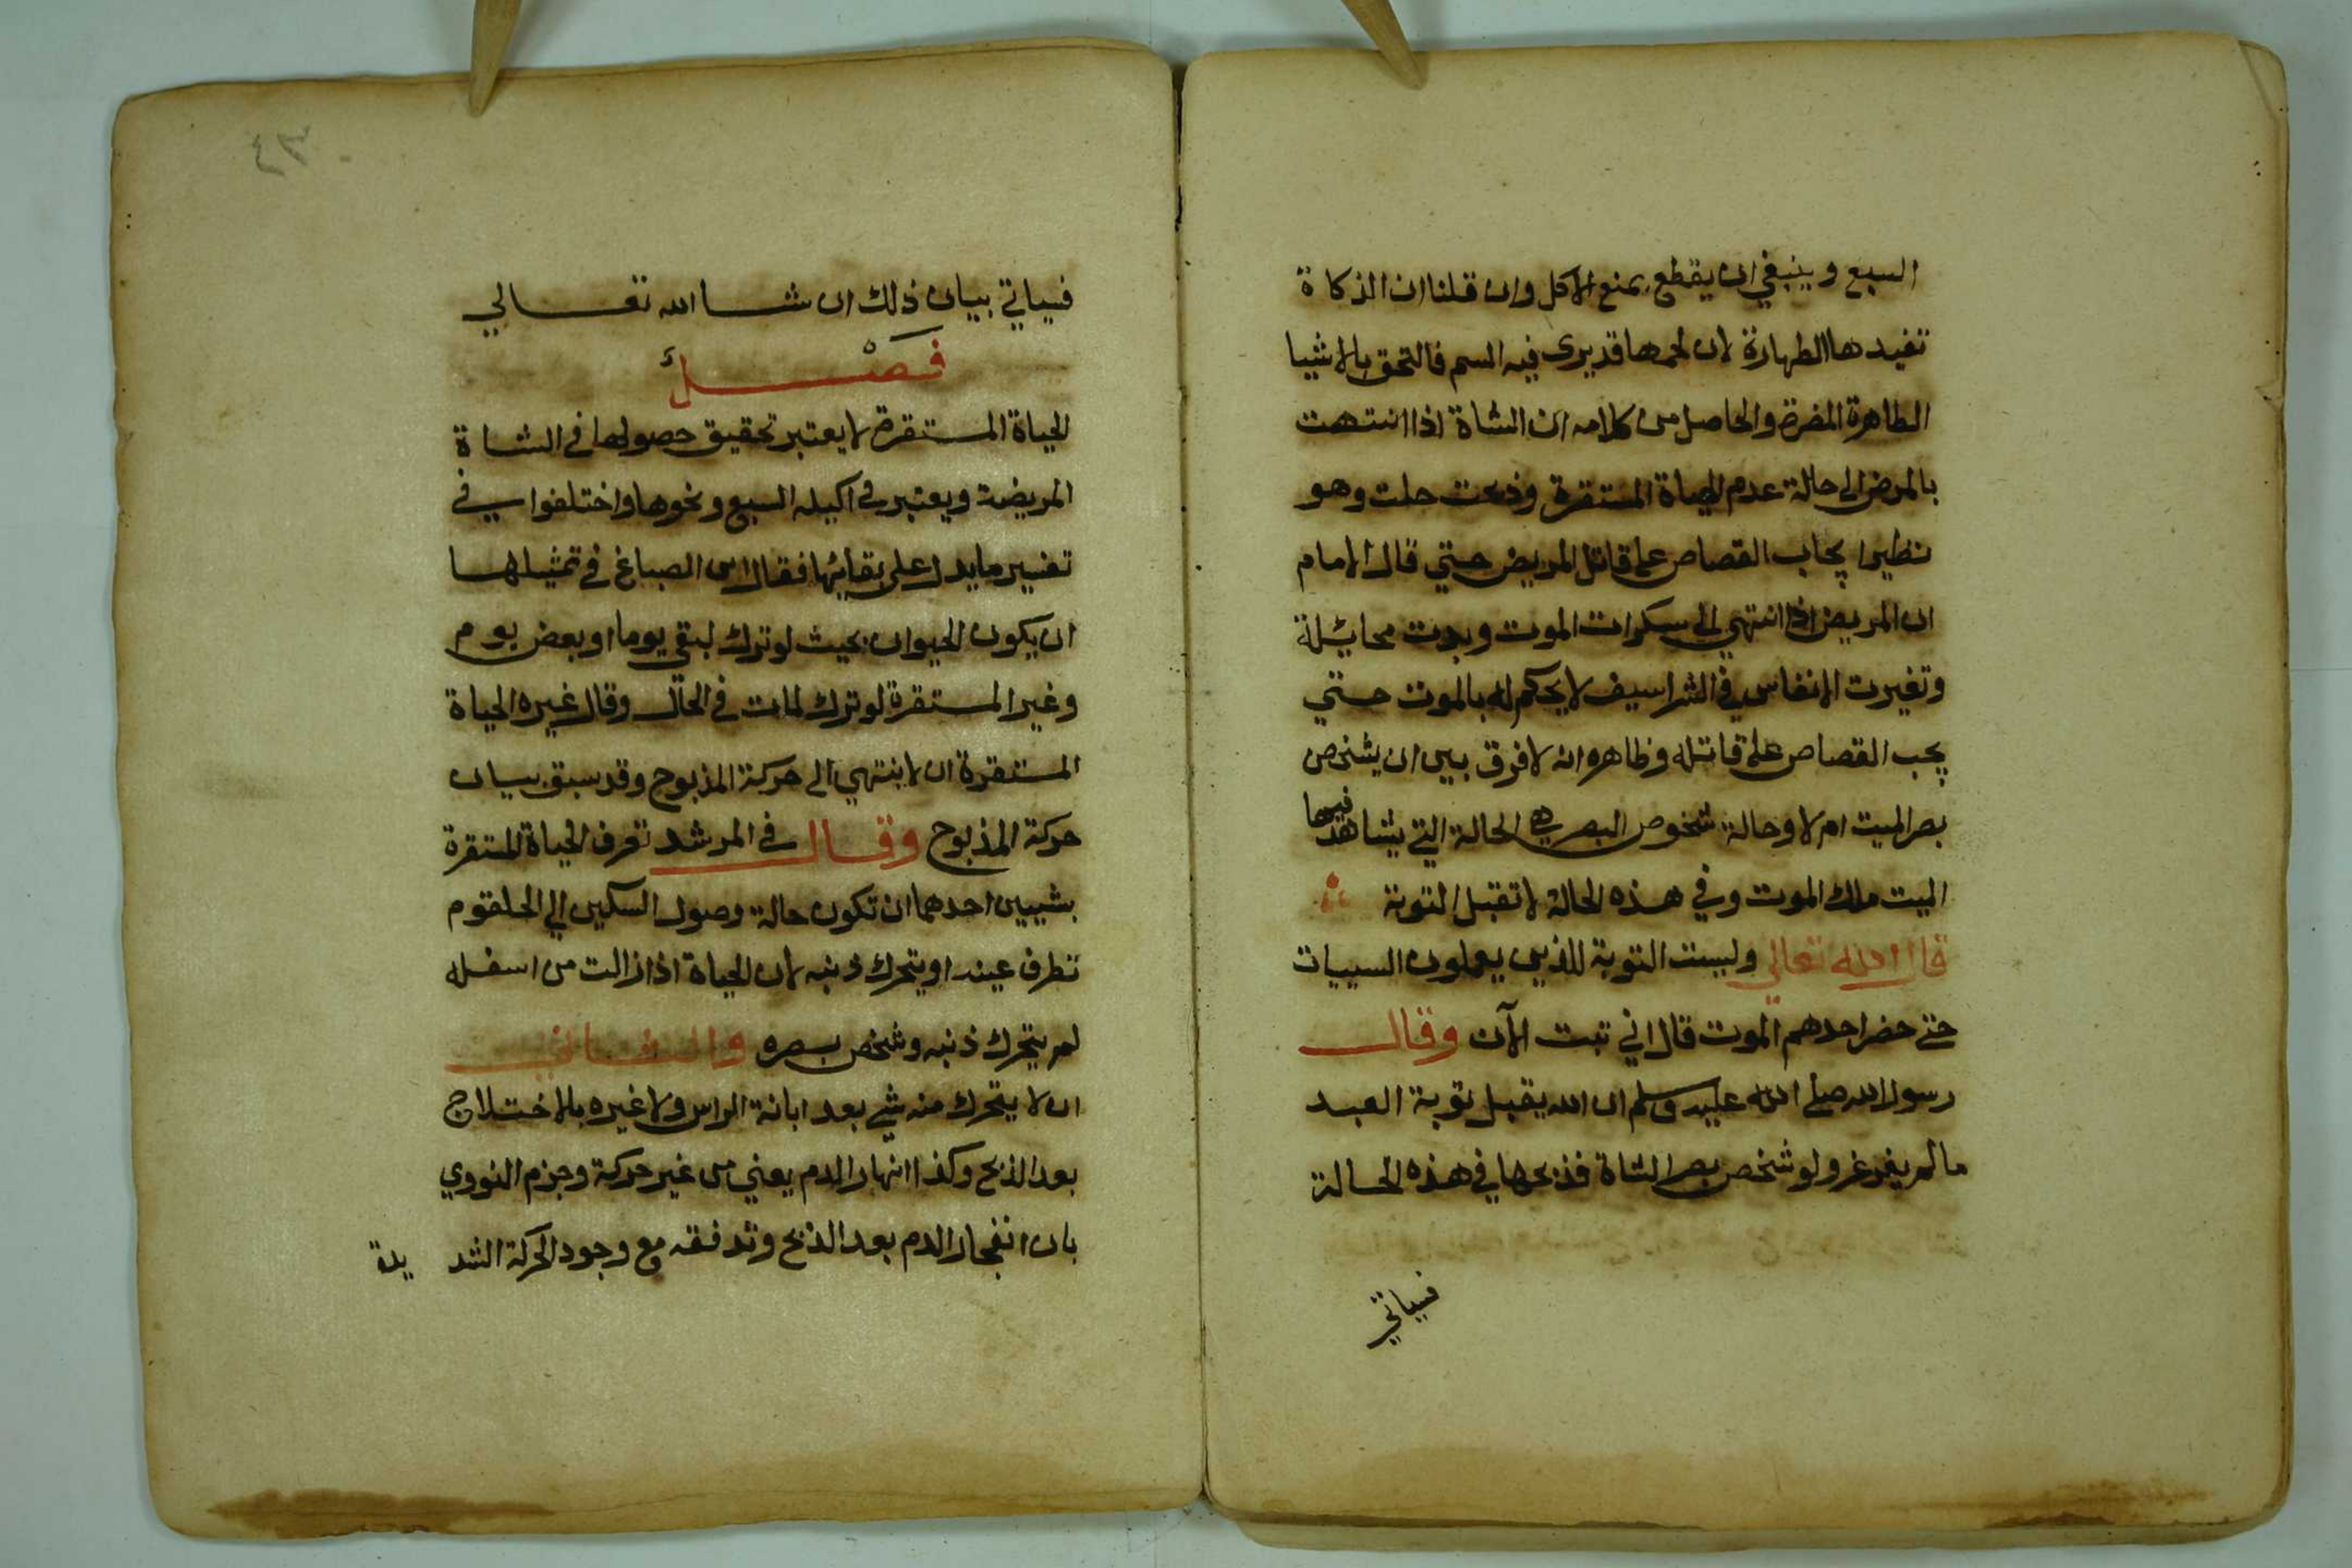 السبع وينبغي ان يقطع بمنع الاكل وان قلنا ان الذكاة
تفيدها الطهارة لان لحمها قد يرى فيه السم فالتحق بالاشيا
الطاهرة المضرة والحاصل من كلامه ان الشاة اذا انتهت
بالمرض الى حالة عدم الحياة المستقرة وذبحت حلت وهو
نظير ايجاب القصاص على قاتل المريض حتي قال الامام
ان المريض اذا انتهي الى سكرات الموت وبدت محائلة
وتغيرت الانفاس في الشراسيف لا يحكم له بالموت حتي
يجب القصاص على قاتله وظاهره انه لا فرق بين ان يشخص
بصر الميت ام لا وحالة شخوص البصر هي الحالة التي يشاهد فيها
الميت ملك الموت وفي هذه الحالة لا تقبل التوبة
قال الله تعالي وليست التوبة للذين يعملون السييات
حتي حضر احدهم الموت قال اني تبت الآن وقال
رسول الله صلي الله عليه وسلم ان الله يقبل توبة العبد
ما لم يغرغر ولو شخص بصر الشاة فذبحها في هذه الحالة
فسياتي
٣٤
فسياتي بيان ذلك ان شا الله تعالي
فصل
الحياة المستقرة لا يعتبر تحقيق حصولها في الشاة
المريضة ويعتبر في اكيلة السبع ونحوها واختلفوا في
تفسير ما يدل على بقائها فقال ابن الصباغ في تمثيلها
ان يكون الحيوان بحيث لو ترك لبقي يوما او بعض يوم
وغير المستقرة لو ترك لمات في الحال وقال غيره الحياة
المستقرة ان لا ينتهي الى حركة المذبوح وقد سبق بيان
حركة المذبوح وقال في المرشد تعرف الحياة المستقرة
بشيين احدهما ان تكون حالة وصول السكين الي الحلقوم
تطرف عينه او يتحرك ذنبه لان الحياة اذا زالت من اسفله
لم يتحرك ذنبه وشخص بصره والثاني
ان لا يتحرك منه شي بعد ابانة الراس ولا غيره بالاختلاج
بعد الذبح وكذا انهار الدم يعني من غير حركة وجزم النووي
بان انفجار الدم بعد الذبح وتدفقه مع وجود الحركة الشد يدة